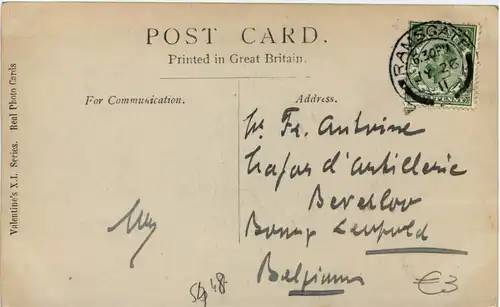 POST CARD.
Printed in Great Britain.
For Communication.
Address.
Valentine's X.L. Series. Real Photo Cards
RAMSGATE
6.30 PM
11
Fr. Antoine
d'artillerie
Beverloo
Bourg Leopold
Belgium
48
€3